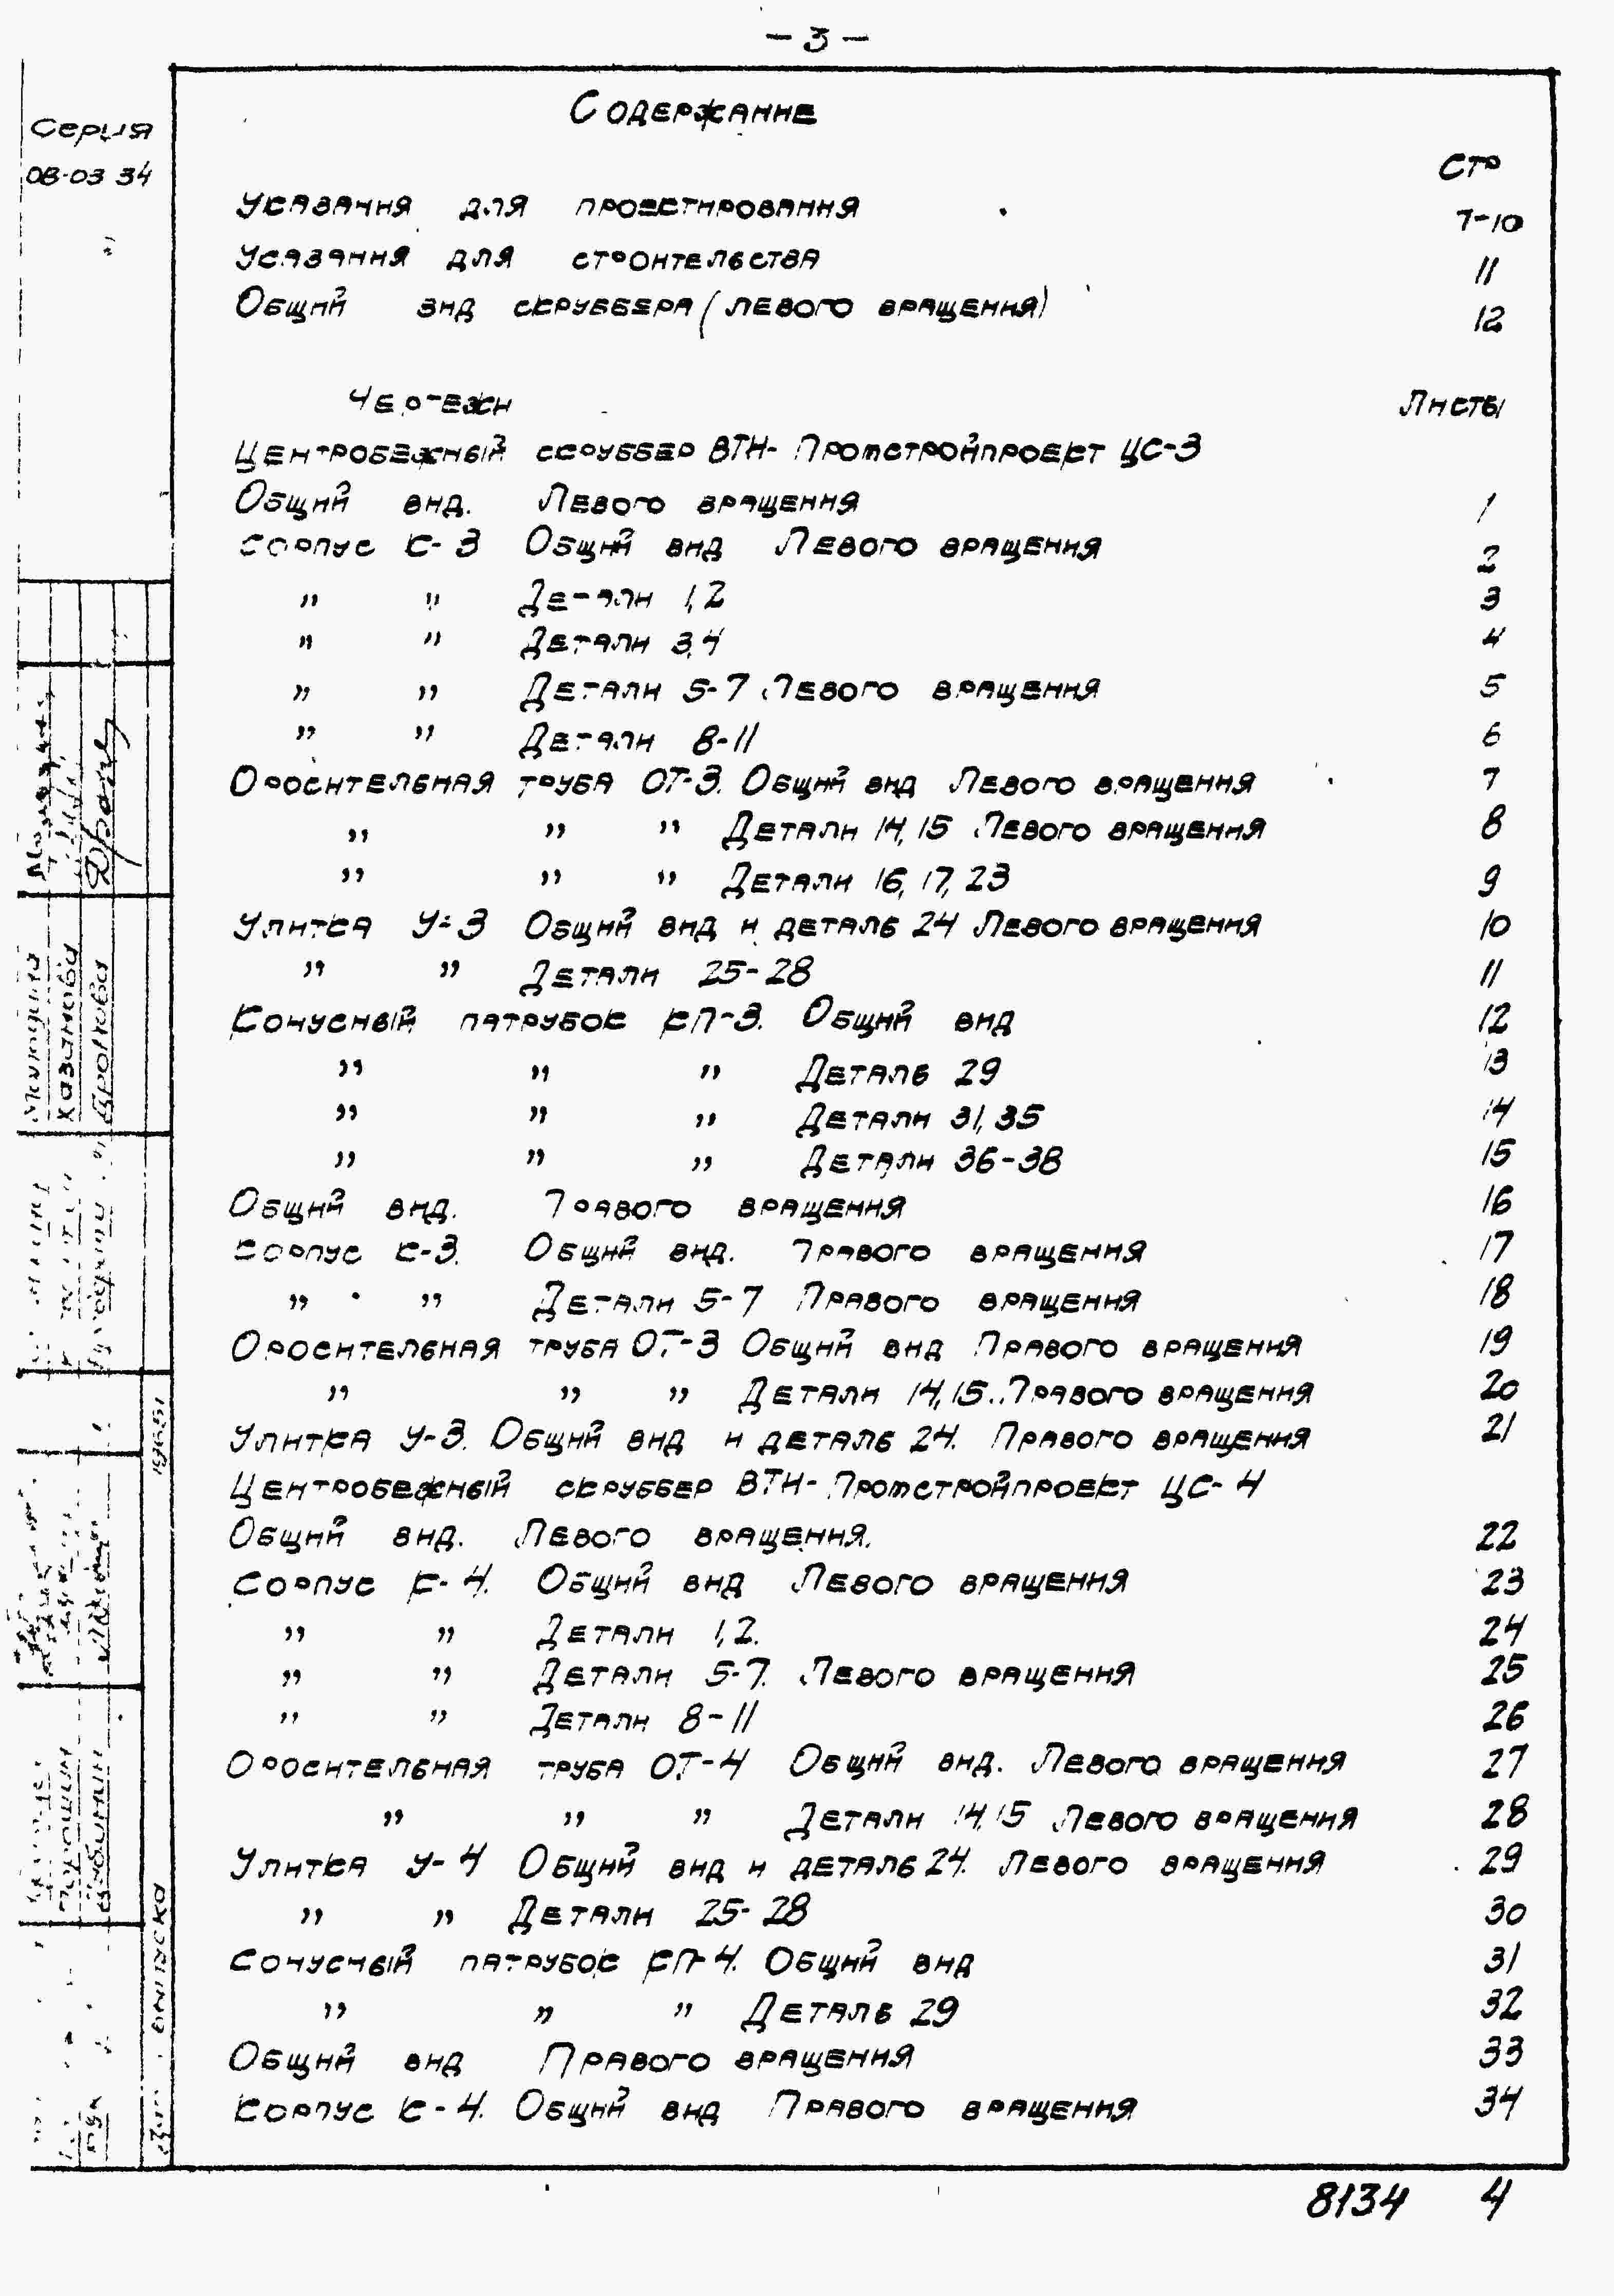 - 3 -
Содержание
Серия
ОВ-03 34
Стр
Указания для проектирования 7-10
Указания для строительства 11
Общий вид скруббера (левого вращения) 12
Чертежи Листы
Центробежный скруббер ВТИ-Промстройпроект ЦС-3
Общий вид. Левого вращения 1
Корпус К-3 Общий вид Левого вращения 2
" " Детали 1,2 3
" " Детали 3,4 4
" " Детали 5-7 Левого вращения 5
" " Детали 8-11 6
Оросительная труба ОТ-3. Общий вид Левого вращения 7
" " " Детали 14, 15 Левого вращения 8
" " " Детали 16, 17, 23 9
Улитка У-3 Общий вид и деталь 24 Левого вращения 10
" " Детали 25-28 11
Конусный патрубок КП-3. Общий вид 12
" " " Деталь 29 13
" " " Детали 31, 35 14
" " " Детали 36-38 15
Общий вид. Правого вращения 16
Корпус К-3. Общий вид. Правого вращения 17
" " Детали 5-7 Правого вращения 18
Оросительная труба ОТ-3 Общий вид Правого вращения 19
" " " Детали 14, 15. Правого вращения 20
Улитка У-3. Общий вид и деталь 24. Правого вращения 21
Центробежный скруббер ВТИ-Промстройпроект ЦС-4
Общий вид. Левого вращения. 22
Корпус К-4. Общий вид Левого вращения 23
" " Детали 1,2. 24
" " Детали 5-7. Левого вращения 25
" " Детали 8-11 26
Оросительная труба ОТ-4 Общий вид. Левого вращения 27
" " " Детали 14, 15 Левого вращения 28
Улитка У-4 Общий вид и деталь 24. Левого вращения 29
" " Детали 25-28 30
Конусный патрубок КП-4. Общий вид 31
" " " Деталь 29 32
Общий вид Правого вращения 33
Корпус К-4. Общий вид Правого вращения 34
Казакова
Дронова
выпуска
8134 4